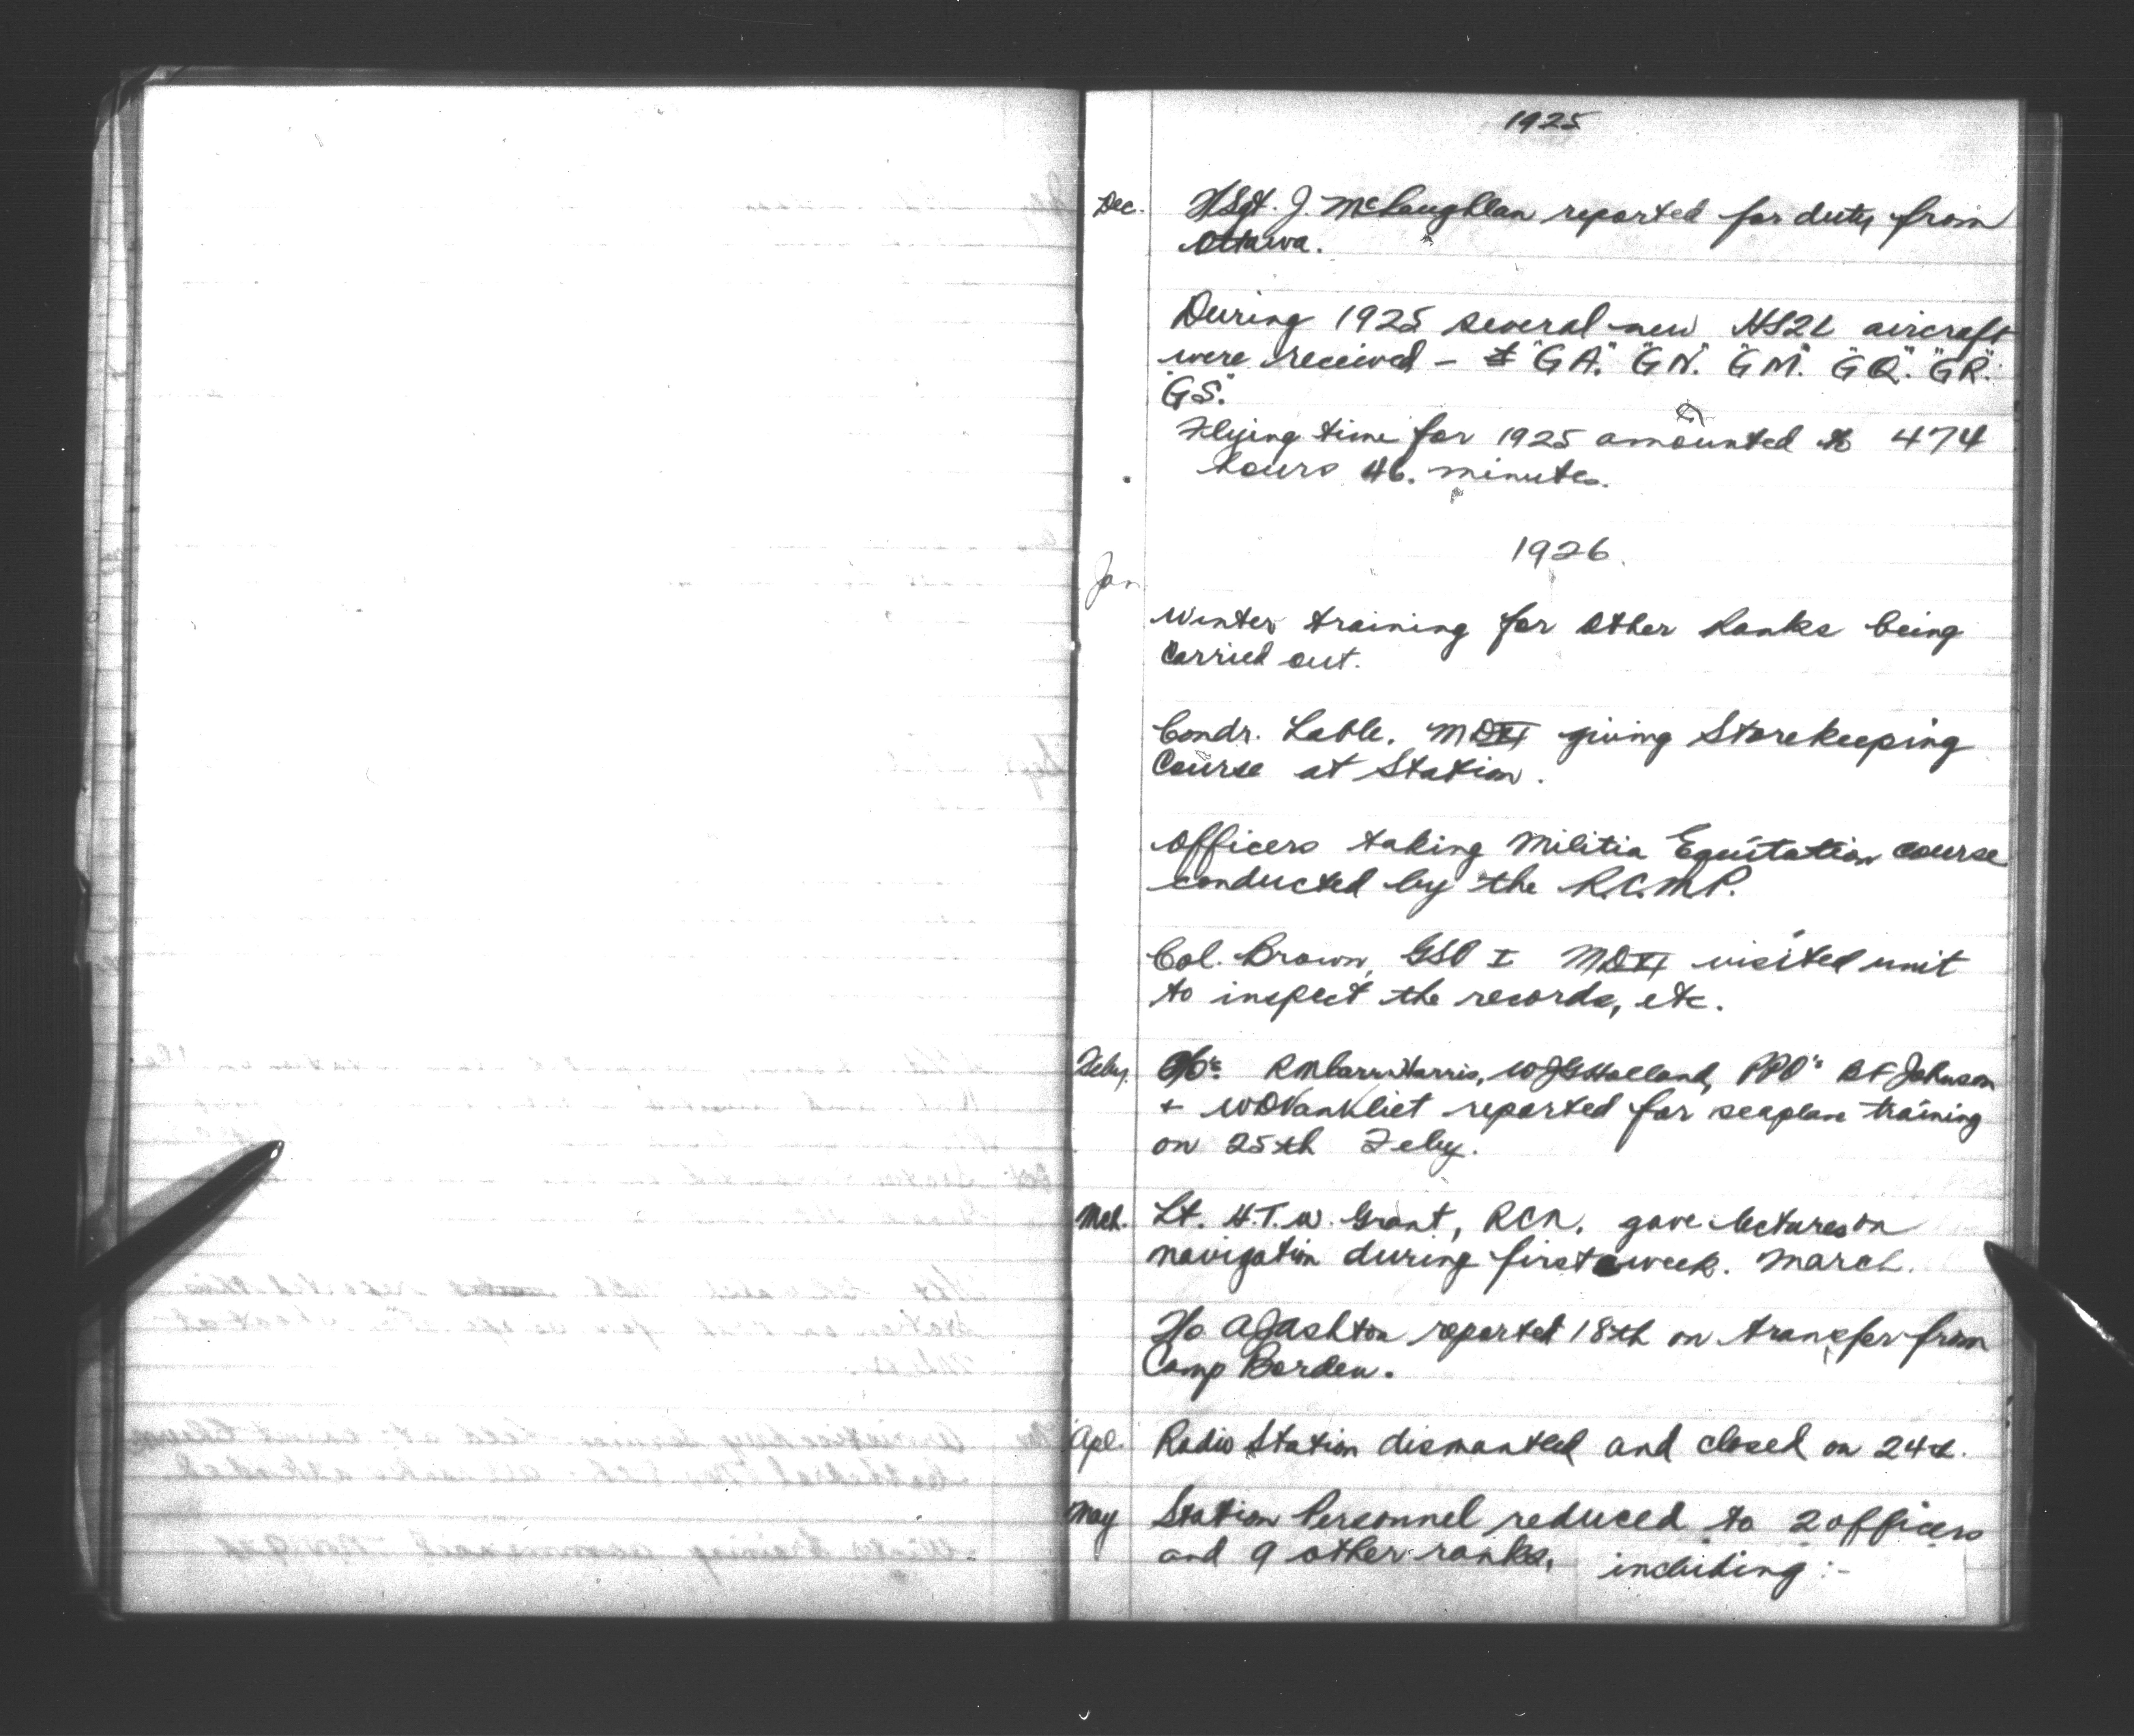 1925
Dec. F/Sgt. J. McLaughlan reported for duty from
Ottawa.
During 1925 several new HS2L aircraft
were received - "GA". "GN". "GM". "GQ". "GR".
"GS".
Flying time for 1925 amounted to 474
hours 46. minutes.
1926.
Jan
Winter training for Other Ranks being
Carried out.
Condr. Lable. MDXI giving Storekeeping
Course at Station.
Officers taking Militia Equitation course
conducted by the R.C.M.P.
Col. Brown, GSO I MDXI visited unit
to inspect the records, etc.
Feby. RMCarrHarris, WJGHolland, PPO's BFJohnson
+ WDVanVliet reported for seaplane training
on 25th Feby.
Mch. Lt. H.T.W. Grant, RCN. gave lectures on
navigation during first week. March.
F/O AJAshton reported 18th on transfer from
Camp Borden.
Apl. Radio Station dismantled and closed on
May Station Personnel reduced to 2 officers
and 9 other ranks, including :-